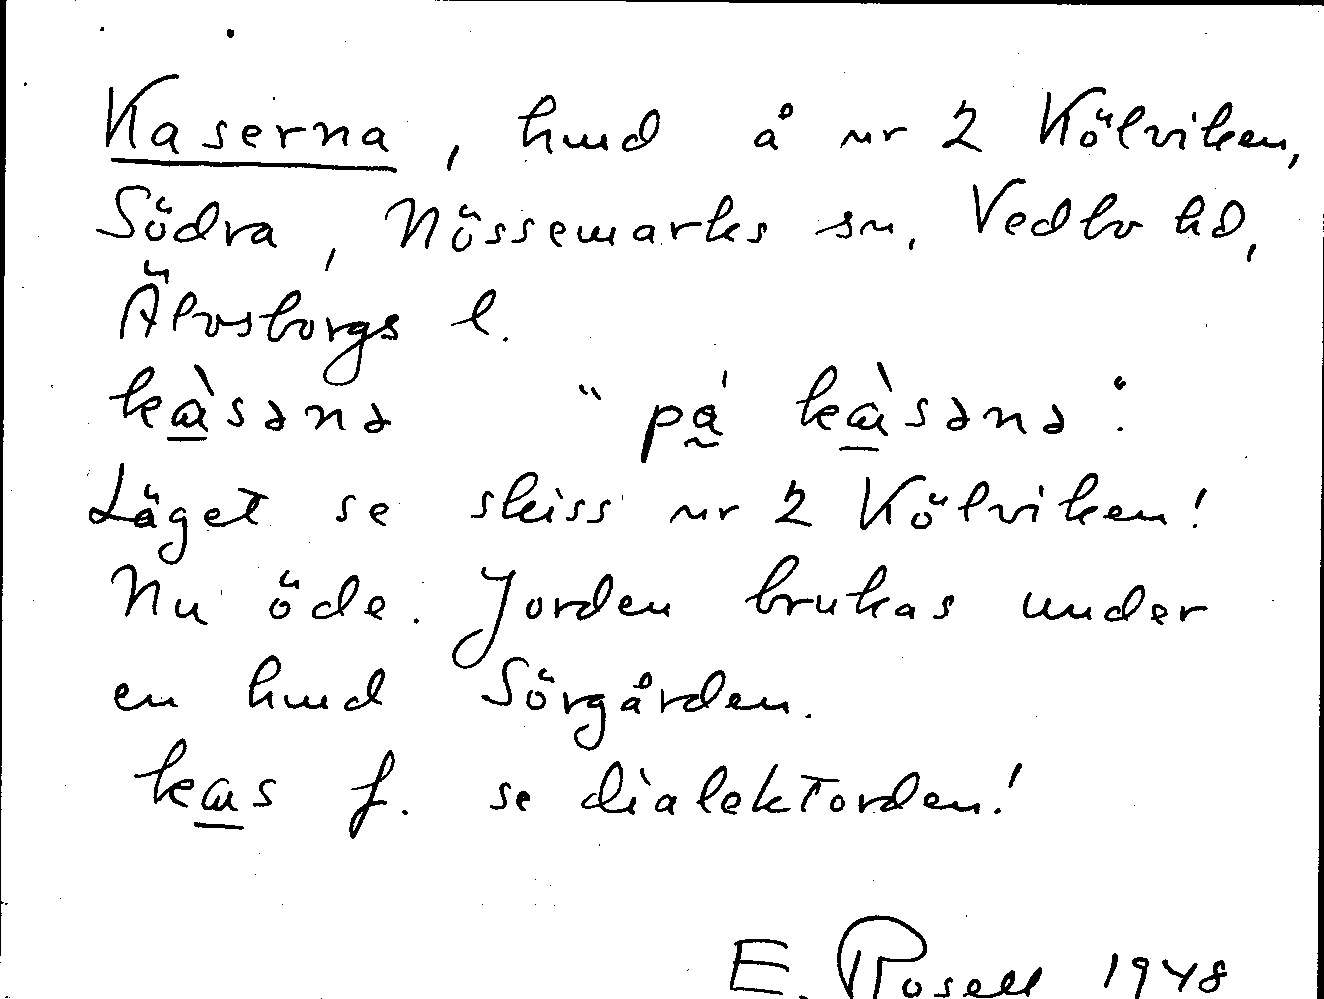 Kaserna, hmd å nr 2 Kölviken,
Södra, Nössemarks sn, Vedbo hd,
Älvsborgs l.
kɑ̀sənə "på kɑ̀sənə".
Läget se skiss nr 2 Kölviken!
Nu öde. Jorden brukas under
en hmd Sörgården.
kɑs f. se dialektorden!
E. Rosell 1948